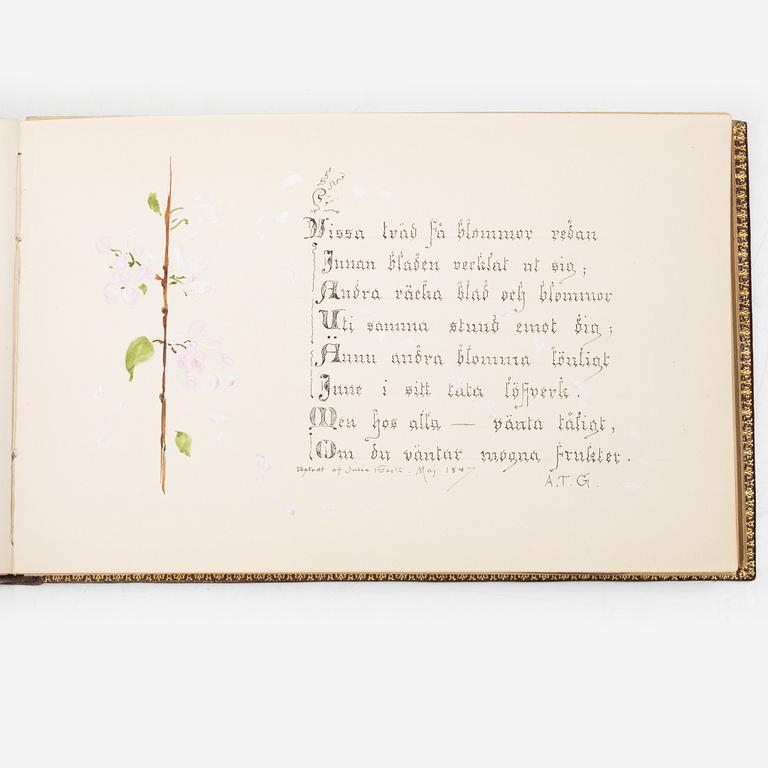 Vissa träd få blommor redan
Innan bladen vecklat ut sig;
Andra räcka blad och blommor
Uti samma stund emot dig;
Ännu andra blomma lönligt
Inne i sitt täta löfverk.
Men hos alla — vänta tåligt,
Om du väntar mogna frukter.
af Maj 1887
A.T.G.